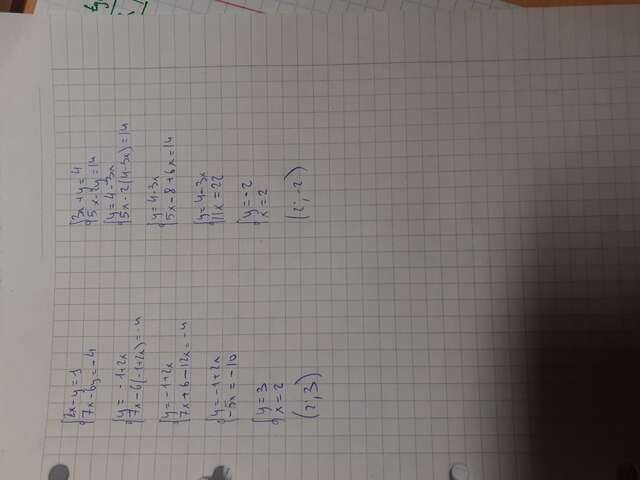 {2x-y=1
{7x-6y=-4
{y=-1+2x
{7x-6(-1+2x)=-4
{y=-1+2x
{7x+6-12x=-4
{y=-1+2x
{-5x=-10
{y=3
{x=2
(2;3)
{3x+y=4
{5x-2y=14
{y=4-3x
{5x-2(4-3x)=14
{y=4-3x
{5x-8+6x=14
{y=4-3x
{11x=22
{y=-2
{x=2
(2;-2)